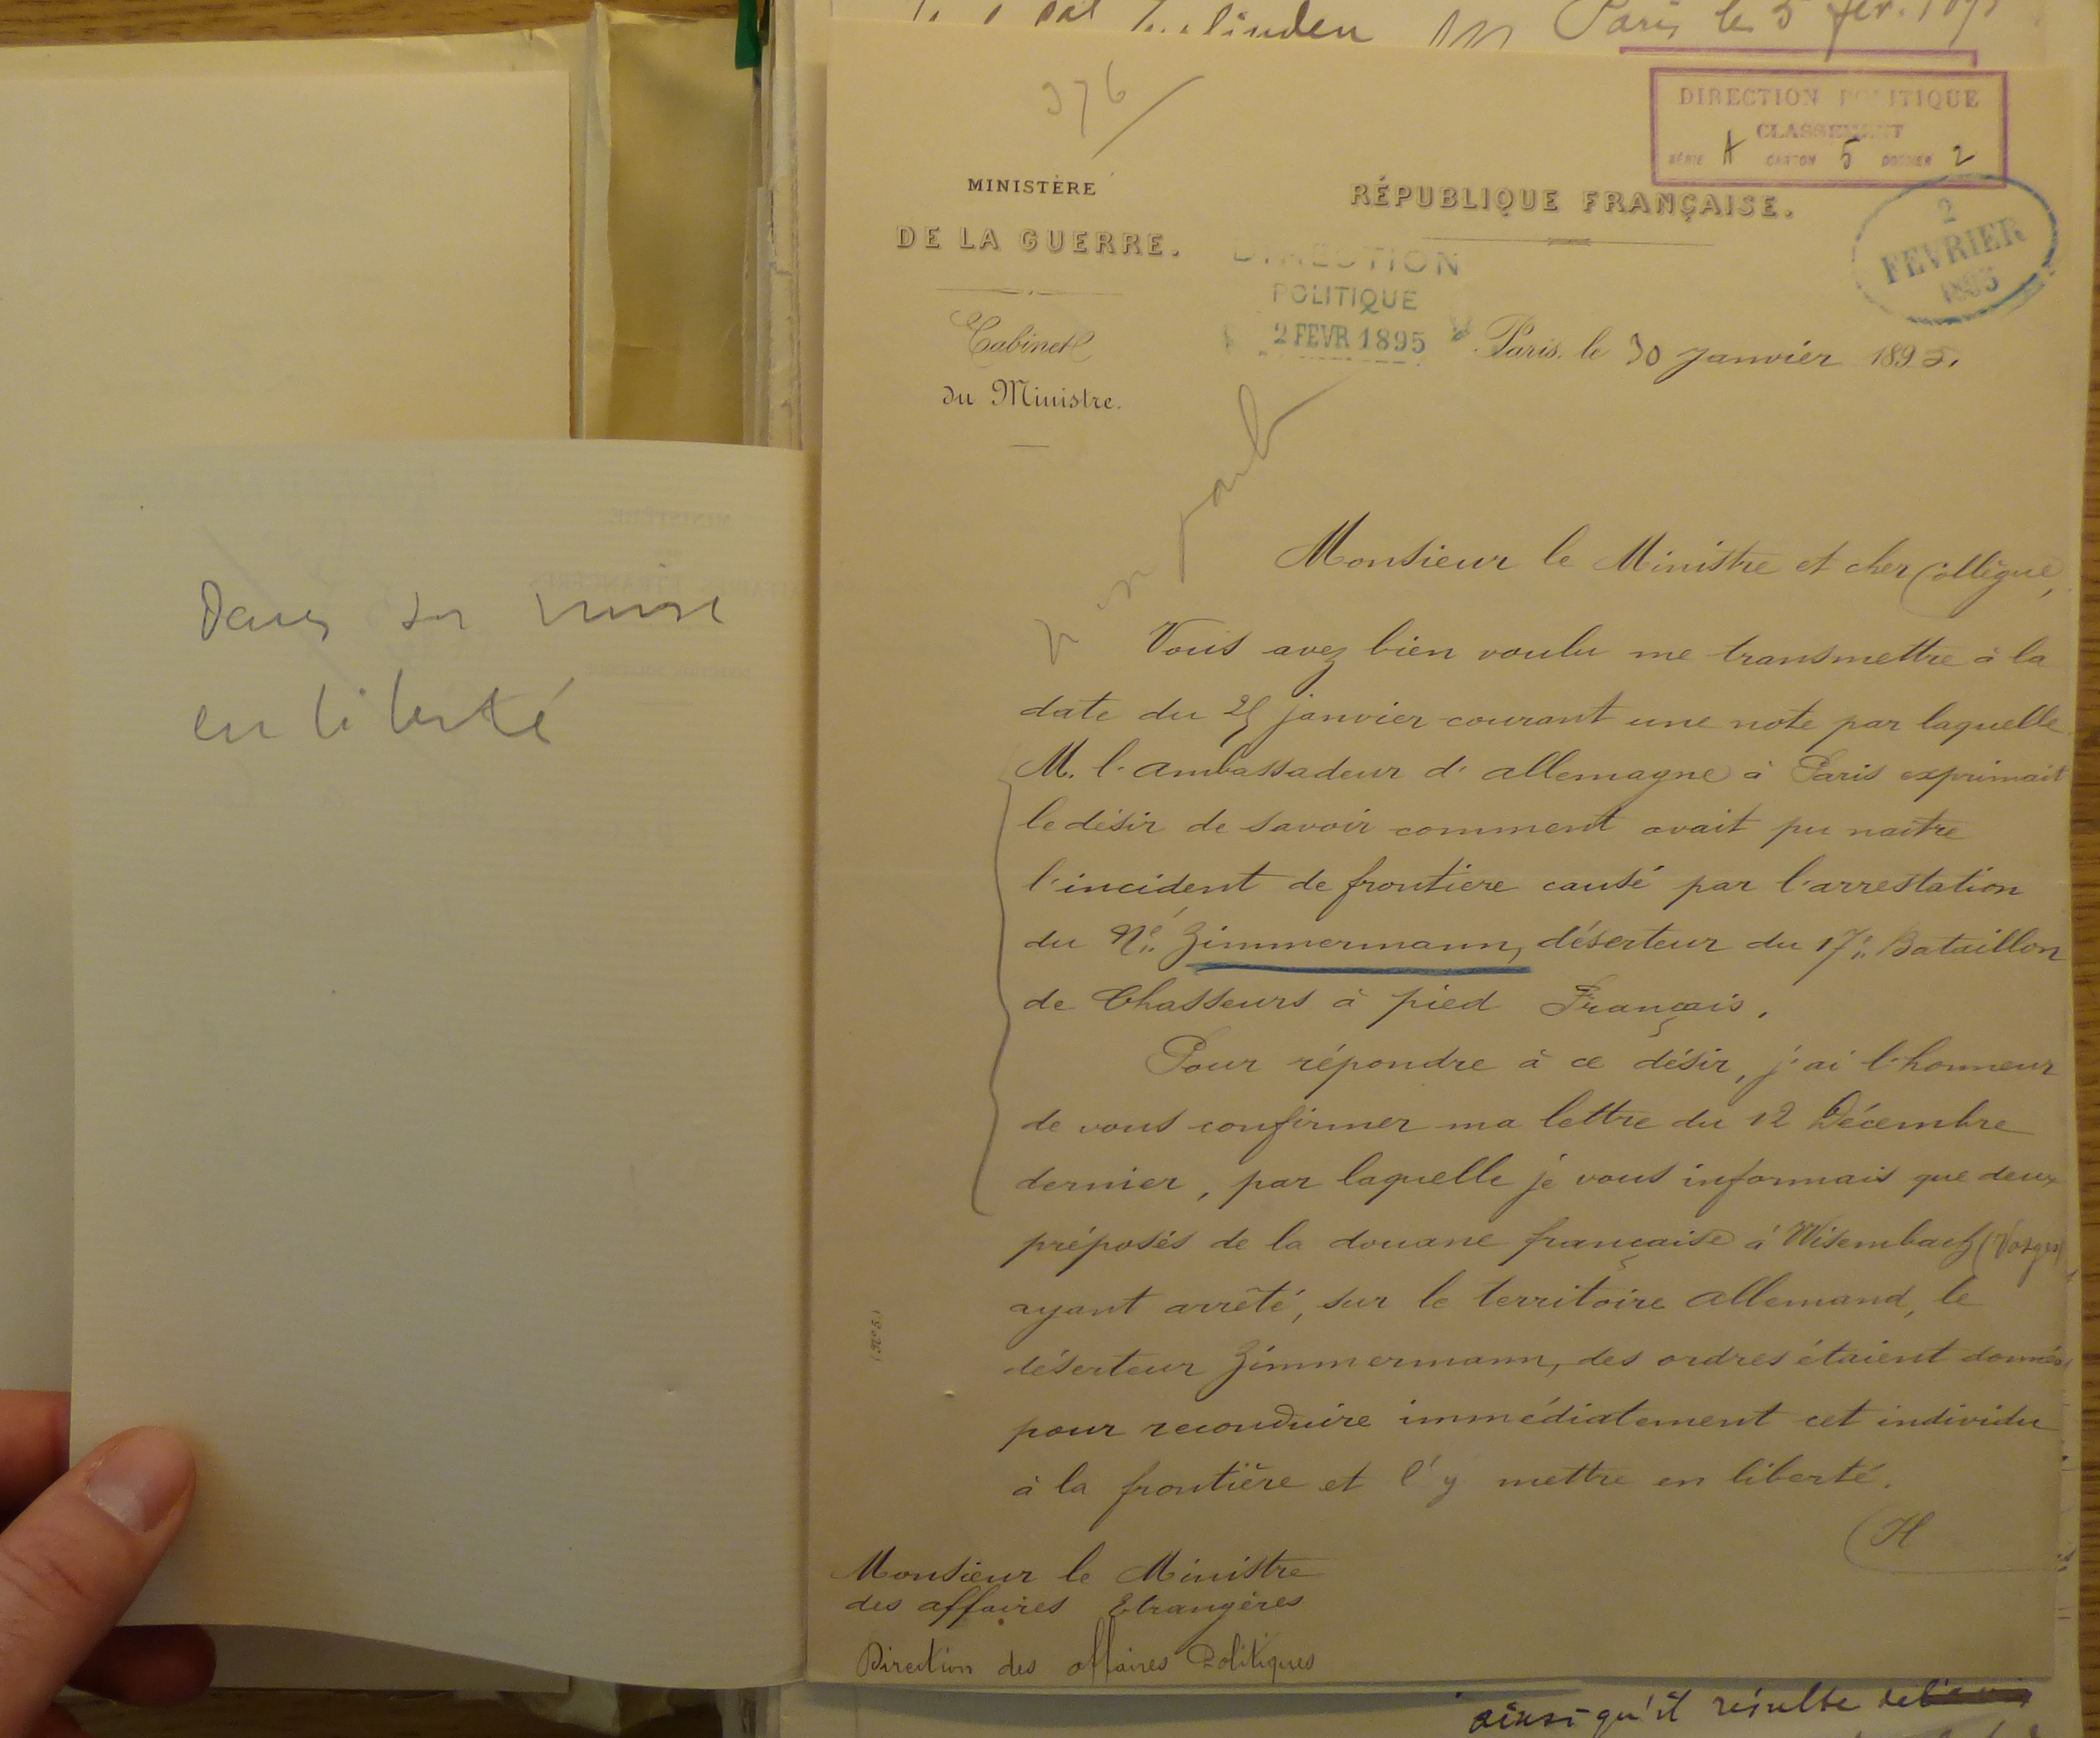 Paris le 5 fév. 189
376
DIRECTION POLITIQUE
CLASSEMENT
SÉRIE A CARTON 5 DOSSIER 2
MINISTÈRE
DE LA GUERRE.
RÉPUBLIQUE FRANÇAISE.
2
FEVRIER
1895
DIRECTION
POLITIQUE
2 FEVR 1895
Cabinet
du Ministre.
Paris, le 30 Janvier 1895.
Monsieur le Ministre et cher Collègue,
Vous avez bien voulu me transmettre à la
date du 25 janvier courant une note par laquelle
M. l'ambassadeur d'allemagne à Paris exprimait
le désir de savoir comment avait pu naitre
l'incident de frontière causé par l'arrestation
du Né Zimmermann, déserteur du 17e Bataillon
de Chasseurs à pied Français.
Pour répondre à ce désir, j'ai l'honneur
de vous confirmer ma lettre du 12 Décembre
dernier, par laquelle je vous informais que deux
préposés de la douane française à Wisembach (Vosges)
ayant arrêté, sur le territoire allemand, le
déserteur Zimmermann, des ordres étaient donnés
pour reconduire immédiatement cet individu
à la frontière et l'y mettre en liberté.
H
Monsieur le Ministre
des affaires Etrangères
Direction des affaires Politiques
(N° 5.)
en liberté
ainsi qu'il résulte de